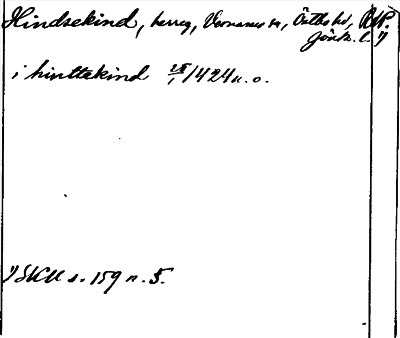 Hindsekind, herreg, Värnamo sn, Östbo hd,
Jönk. l. 1)
i hinttakind 25/1 1424 n. o.
1) SRU s. 159 n. 5.